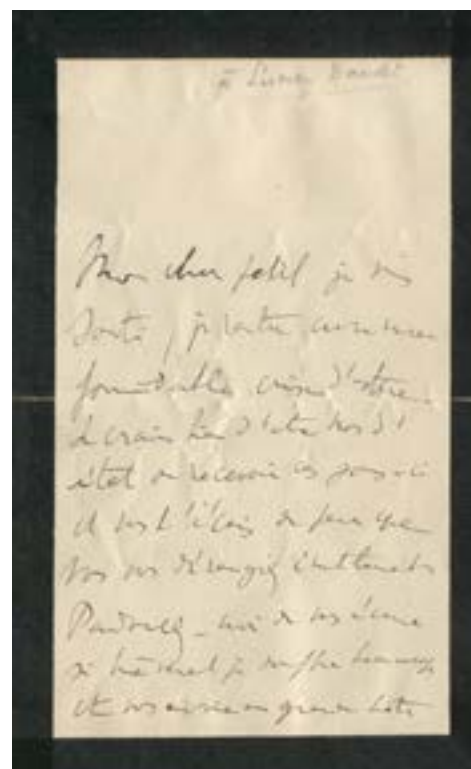 à Lucien Daudet
Mon cher petit je suis
sorti, je rentre avec une
formidable crise d'asthme
Je crains bien d'être hors d'
état de recevoir ces jours-ci
et vous l'écris de peur que
vous vous dérangiez inutilement
Pardonnez-moi de vous écrire
si mal je souffre beaucoup
et vous écris en grande hâte